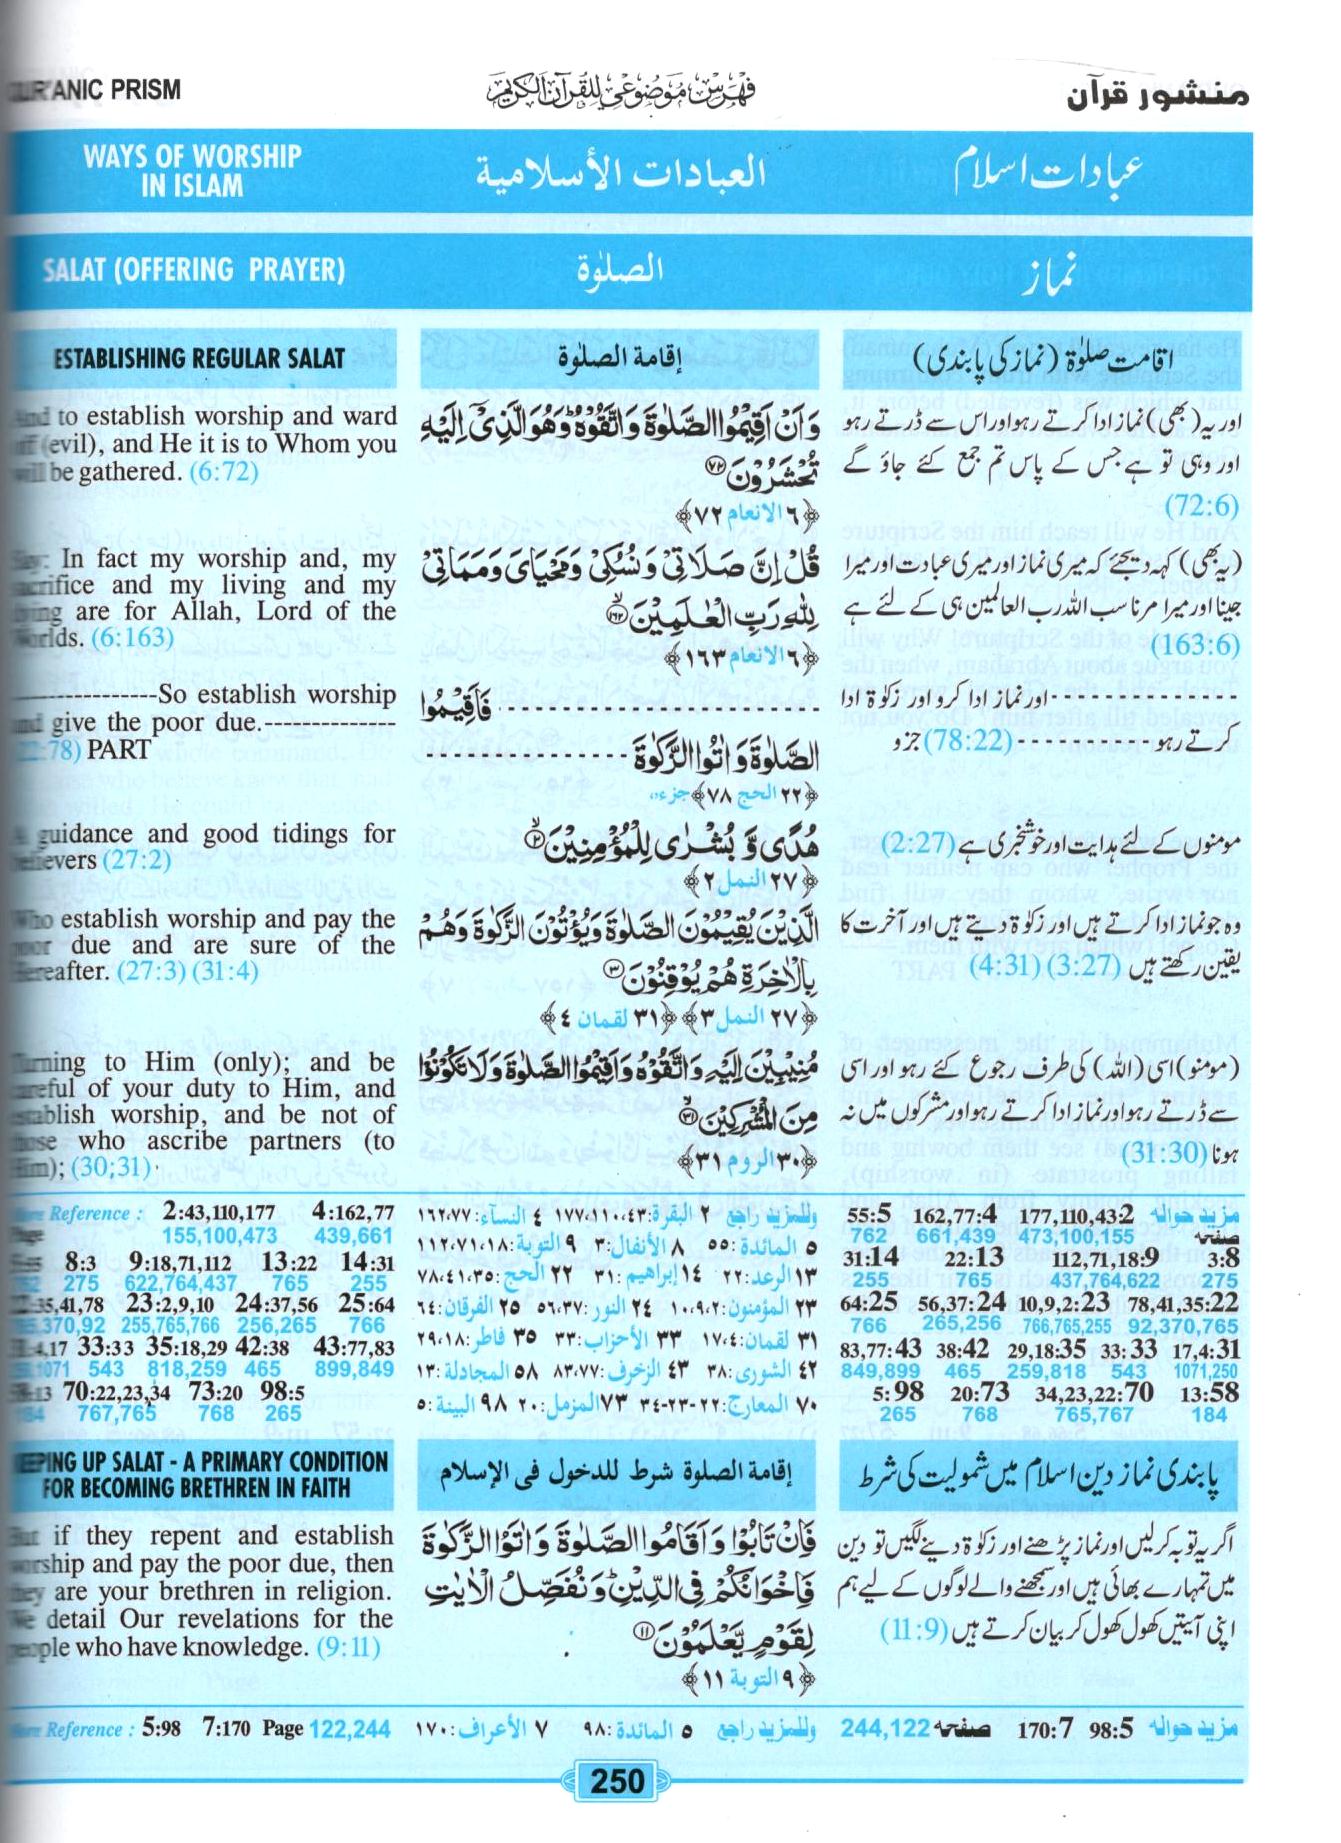 QUR'ANIC PRISM
فهرس موضوعي للقرآن الكريم
منشور قرآن
WAYS OF WORSHIP
IN ISLAM
العبادات الأسلامية
عبادات اسلام
SALAT (OFFERING PRAYER)
الصلوٰة
نماز
ESTABLISHING REGULAR SALAT
And to establish worship and ward
off (evil), and He it is to Whom you
will be gathered. (6:72)
Say: In fact my worship and, my
sacrifice and my living and my
dying are for Allah, Lord of the
Worlds. (6:163)
-------------So establish worship
and give the poor due.-------------
(22:78) PART
A guidance and good tidings for
believers (27:2)
Who establish worship and pay the
poor due and are sure of the
Hereafter. (27:3) (31:4)
Turning to Him (only); and be
careful of your duty to Him, and
establish worship, and be not of
those who ascribe partners (to
Him); (30:31)
إقامة الصلوٰة
وَاَنْ اَقِيْمُوا الصَّلٰوةَ وَاتَّقُوْهُ ۭ وَهُوَ الَّذِيْٓ اِلَيْهِ
تُحْشَرُوْنَ ۝٧٢
﴿٦ الانعام ٧٢﴾
قُلْ اِنَّ صَلَاتِيْ وَنُسُكِيْ وَمَحْيَايَ وَمَمَاتِيْ
لِلّٰهِ رَبِّ الْعٰلَمِيْنَ ۝١٦٢ۙ
﴿٦ الانعام ١٦٣﴾
------------------------ فَاَقِيْمُوا
الصَّلٰوةَ وَاٰتُوا الزَّكٰوةَ ----------------
﴿٢٢ الحج ٧٨﴾ جزء
هُدًى وَّ بُشْرٰى لِلْمُؤْمِنِيْنَ ۝٢ۙ
﴿٢٧ النمل ٢﴾
الَّذِيْنَ يُقِيْمُوْنَ الصَّلٰوةَ وَيُؤْتُوْنَ الزَّكٰوةَ وَهُمْ
بِالْاٰخِرَةِ هُمْ يُوْقِنُوْنَ ۝٣
﴿٢٧ النمل ٣﴾ ﴿٣١ لقمان ٤﴾
مُنِيْبِيْنَ اِلَيْهِ وَاتَّقُوْهُ وَاَقِيْمُوا الصَّلٰوةَ وَلَا تَكُوْنُوْا
مِنَ الْمُشْرِكِيْنَ ۝٣١ۙ
﴿٣٠ الروم ٣١﴾
اقامت صلوٰۃ (نماز کی پابندی)
اور یہ (بھی) نماز ادا کرتے رہو اور اس سے ڈرتے رہو
اور وہی تو ہے جس کے پاس تم جمع کئے جاؤ گے
(72:6)
(یہ بھی) کہہ دیجئے کہ میری نماز اور میری عبادت اور میرا
جینا اور میرا مرنا سب اللہ رب العالمین ہی کے لئے ہے
(163:6)
----------------- اور نماز ادا کرو اور زکوٰۃ ادا
کرتے رہو ----------- (78:22) جزو
مومنوں کے لئے ہدایت اور خوشخبری ہے (2:27)
وہ جو نماز ادا کرتے ہیں اور زکوٰۃ دیتے ہیں اور آخرت کا
یقین رکھتے ہیں (3:27) (4:31)
(مومنو) اسی (اللہ) کی طرف رجوع کئے رہو اور اسی
سے ڈرتے رہو اور نماز ادا کرتے رہو اور مشرکوں میں نہ
ہونا (31:30)
More Reference : 2:43,110,177 4:162,77
Page 155,100,473 439,661
8:3 9:18,71,112 13:22 14:31
275 622,764,437 765 255
22:35,41,78 23:2,9,10 24:37,56 25:64
370,92 255,765,766 256,265 766
31:4,17 33:33 35:18,29 42:38 43:77,83
1071 543 818,259 465 899,849
58:13 70:22,23,34 73:20 98:5
184 767,765 768 265
وللمزيد راجع ٢ البقرة:٤٣،١١٠،١٧٧ ٤ النساء:٧٧،١٦٢
٥ المائدة:٥٥ ٨ الأنفال:٣ ٩ التوبة:١٨،٧١،١١٢
١٣ الرعد:٢٢ ١٤ إبراهيم:٣١ ٢٢ الحج:٣٥،٤١،٧٨
٢٣ المؤمنون:٢،٩،١٠ ٢٤ النور:٣٧،٥٦ ٢٥ الفرقان:٦٤
٣١ لقمان:٤،١٧ ٣٣ الأحزاب:٣٣ ٣٥ فاطر:١٨،٢٩
٤٢ الشورى:٣٨ ٤٣ الزخرف:٧٧،٨٣ ٥٨ المجادلة:١٣
٧٠ المعارج:٢٢-٢٣-٣٤ ٧٣ المزمل:٢٠ ٩٨ البينة:٥
مزید حوالہ 177,110,43:2 162,77:4 55:5
صفحہ 473,100,155 661,439 762
3:8 112,71,18:9 22:13 31:14
275 437,764,622 765 255
78,41,35:22 10,9,2:23 56,37:24 64:25
92,370,765 766,765,255 265,256 766
17,4:31 33:33 29,18:35 38:42 83,77:43
1071,250 543 259,818 465 849,899
13:58 34,23,22:70 20:73 5:98
184 765,767 768 265
KEEPING UP SALAT - A PRIMARY CONDITION
FOR BECOMING BRETHREN IN FAITH
But if they repent and establish
worship and pay the poor due, then
they are your brethren in religion.
We detail Our revelations for the
people who have knowledge. (9:11)
إقامة الصلوة شرط للدخول فى الإسلام
فَاِنْ تَابُوْا وَاَقَامُوا الصَّلٰوةَ وَاٰتَوُا الزَّكٰوةَ
فَاِخْوَانُكُمْ فِي الدِّيْنِ ۭ وَنُفَصِّلُ الْاٰيٰتِ
لِقَوْمٍ يَّعْلَمُوْنَ ۝١١
﴿٩ التوبة ١١﴾
پابندی نماز دین اسلام میں شمولیت کی شرط
اگر یہ توبہ کرلیں اور نماز پڑھنے اور زکوٰۃ دینے لگیں تو دین
میں تمہارے بھائی ہیں اور سمجھنے والے لوگوں کے لیے ہم
اپنی آیتیں کھول کھول کر بیان کرتے ہیں (11:9)
More Reference : 5:98 7:170 Page 122,244
وللمزيد راجع ٥ المائدة:٩٨ ٧ الأعراف:١٧٠
مزید حوالہ 98:5 170:7 صفحہ 244,122
250